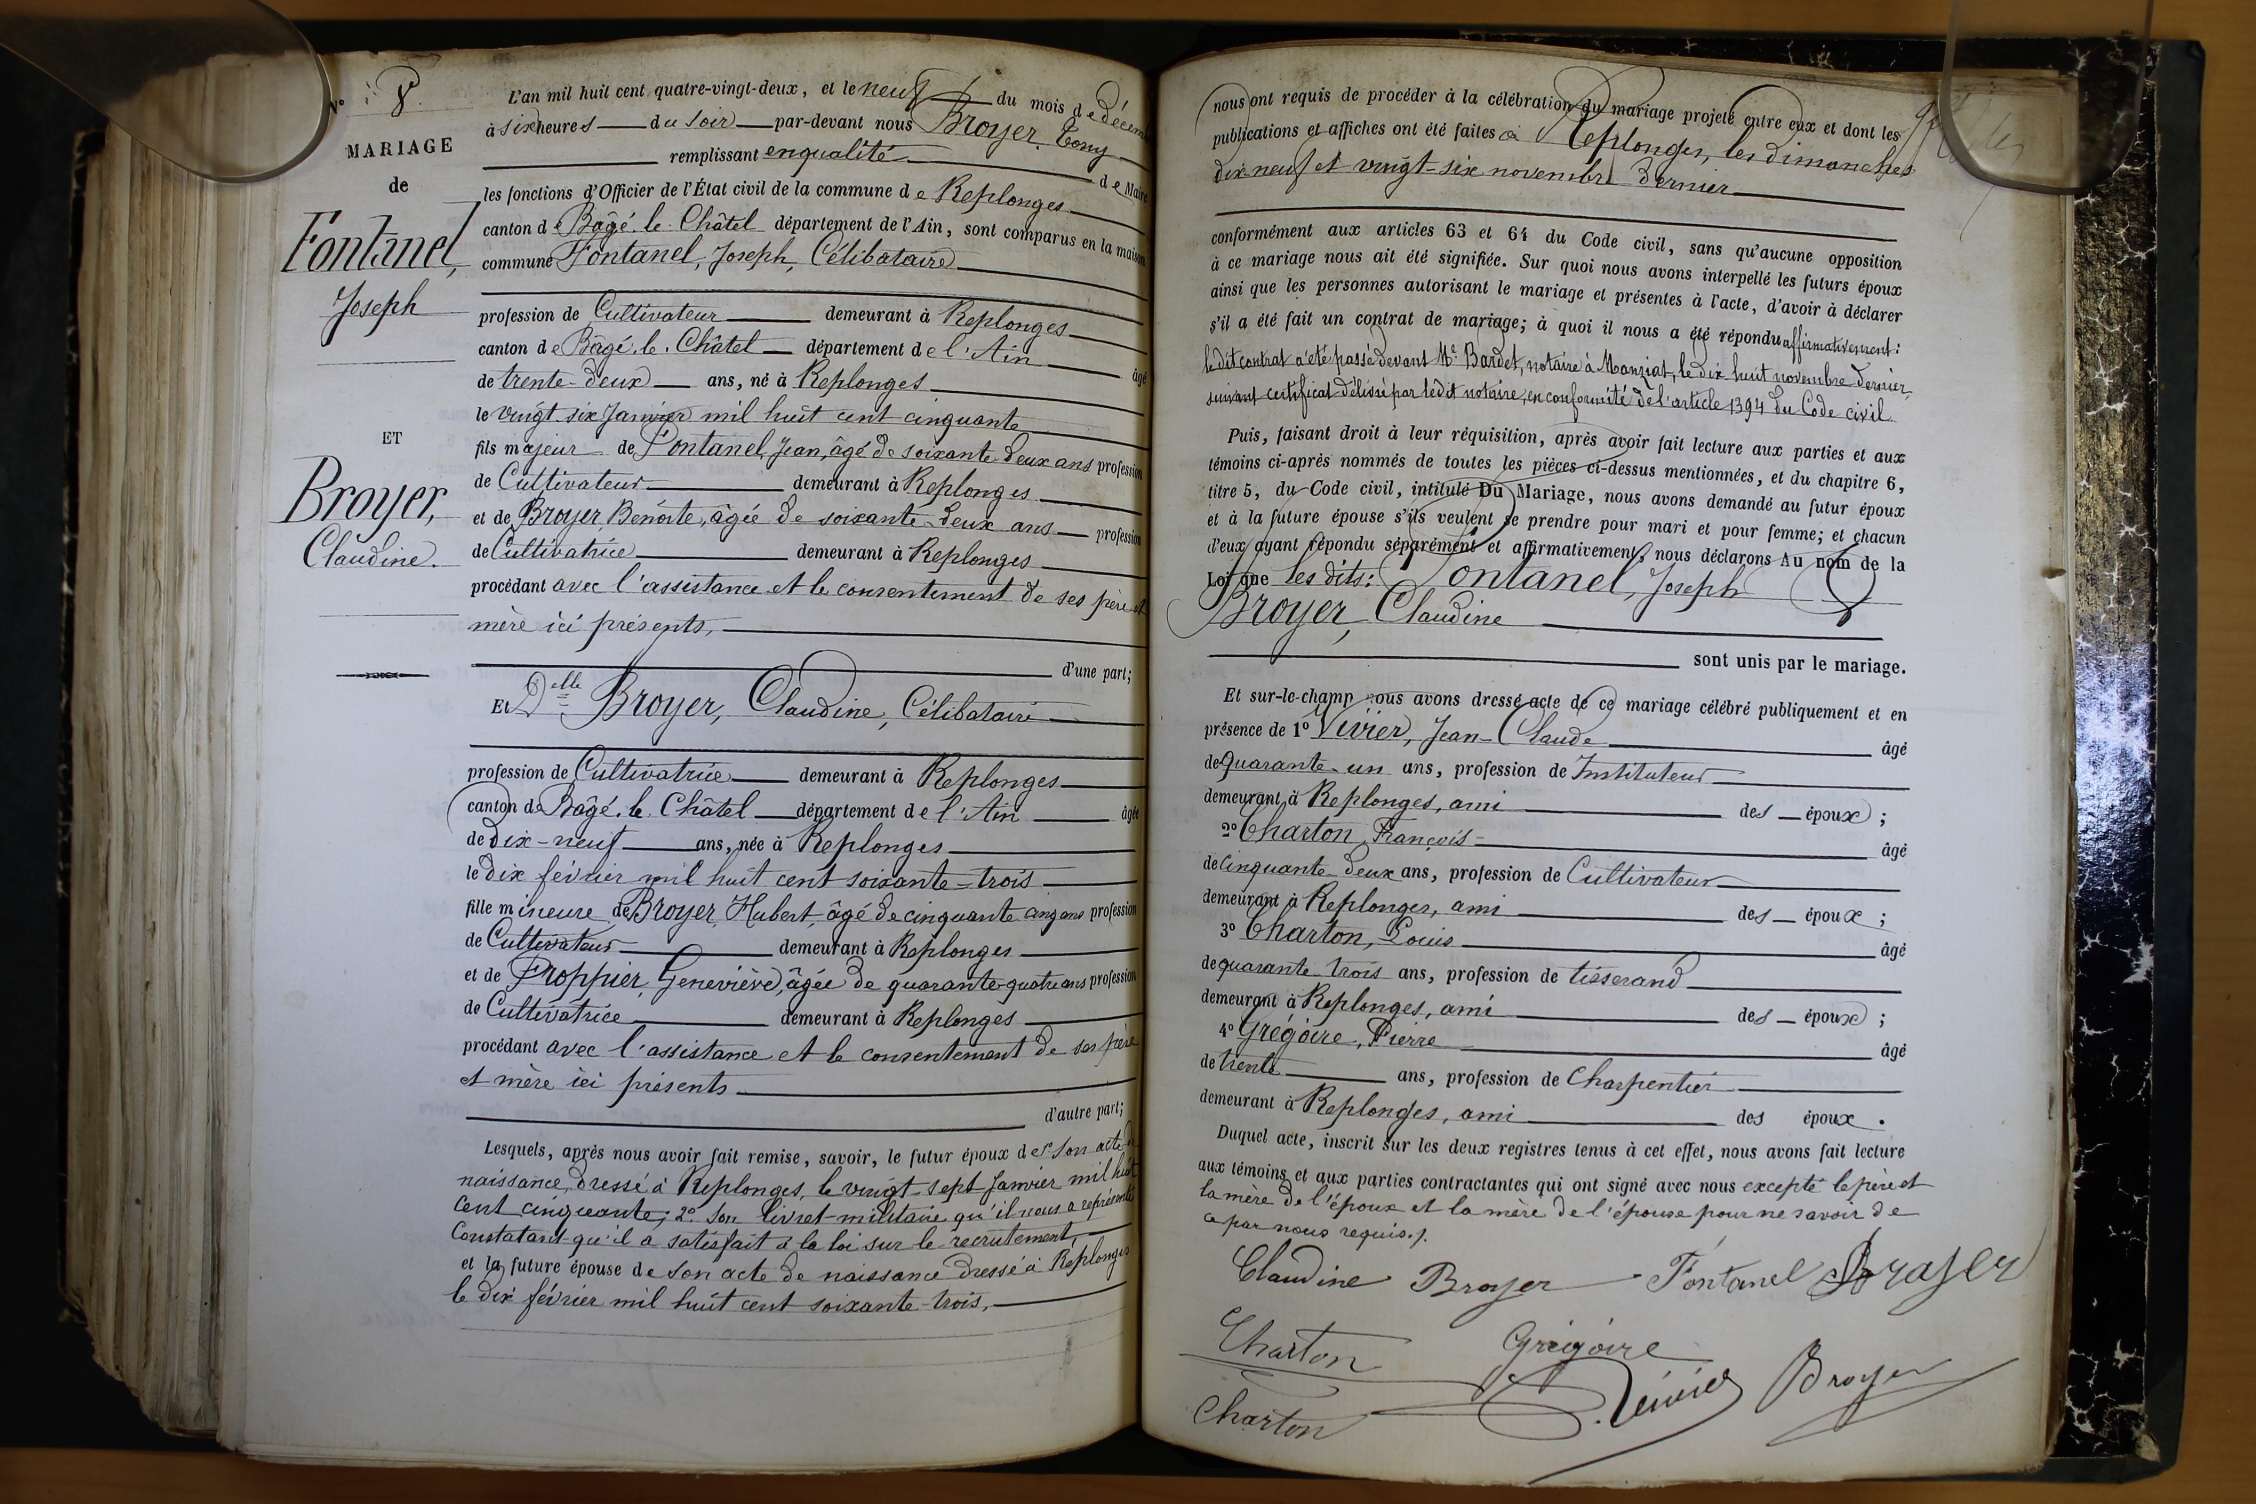 N° 8.
MARIAGE
de
Fontanel,
Joseph
ET
Broyer,
Claudine.
L'an mil huit cent quatre-vingt-deux, et le neuf du mois de décem
à six heures du soir par-devant nous Broyer, Tony
remplissant en qualité de Maire
les fonctions d'Officier de l'État civil de la commune de Replonges
canton de Bâgé-le-Châtel département de l'Ain, sont comparus en la maison
commune Fontanel, Joseph, Célibataire
profession de Cultivateur demeurant à Replonges
canton de Bâgé-le-Châtel département de l'Ain âgé
de trente-deux ans, né à Replonges
le vingt-six Janvier mil huit cent cinquante
fils majeur de Fontanel, Jean, âgé de soixante-deux ans profession
de Cultivateur demeurant à Replonges
et de Broyer Benoîte, âgée de soixante-deux ans profession
de Cultivatrice demeurant à Replonges
procédant avec l'assistance et le consentement de ses père et
mère ici présents,
d'une part;
Et Delle Broyer, Claudine, Célibataire
profession de Cultivatrice demeurant à Replonges
canton de Bâgé-le-Châtel département de l'Ain âgée
de dix-neuf ans, née à Replonges
le dix février mil huit cent soixante-trois
fille mineure de Broyer, Hubert, âgé de cinquante cinq ans profession
de Cultivateur demeurant à Replonges
et de Froppier, Geneviève, âgée de quarante-quatre ans profession
de Cultivatrice demeurant à Replonges
procédant avec l'assistance et le consentement de ses père
et mère ici présents
d'autre part;
Lesquels, après nous avoir fait remise, savoir, le futur époux de 1° son acte de
naissance, dressé à Replonges, le vingt-sept Janvier mil huit
cent cinquante; 2° son livret-militaire qu'il nous a représenté
Constatant qu'il a satisfait à la loi sur le recrutement
et la future épouse de son acte de naissance dressé à Replonges
le dix février mil huit cent soixante-trois,
nous ont requis de procéder à la célébration du mariage projeté entre eux et dont les
publications et affiches ont été faites à Replonges, les dimanches
dix neuf et vingt-six novembre dernier
conformément aux articles 63 et 64 du Code civil, sans qu'aucune opposition
à ce mariage nous ait été signifiée. Sur quoi nous avons interpellé les futurs époux
ainsi que les personnes autorisant le mariage et présentes à l'acte, d'avoir à déclarer
s'il a été fait un contrat de mariage; à quoi il nous a été répondu affirmativement:
le dit contrat a été passé devant Me Bardet, notaire à Manziat, le dix huit novembre dernier,
suivant certificat délivré par le dit notaire, en conformité de l'article 1394 du Code civil.
Puis, faisant droit à leur réquisition, après avoir fait lecture aux parties et aux
témoins ci-après nommés de toutes les pièces ci-dessus mentionnées, et du chapitre 6,
titre 5, du Code civil, intitulé Du Mariage, nous avons demandé au futur époux
et à la future épouse s'ils veulent se prendre pour mari et pour femme; et chacun
d'eux ayant répondu séparément et affirmativement, nous déclarons Au nom de la
Loi que les dits: Fontanel, Joseph &
Broyer, Claudine
sont unis par le mariage.
Et sur-le-champ nous avons dressé acte de ce mariage célébré publiquement et en
présence de 1° Vivier, Jean-Claude âgé
de quarante-un ans, profession de Instituteur
demeurant à Replonges, ami des époux;
2° Charton, François âgé
de cinquante-deux ans, profession de Cultivateur
demeurant à Replonges, ami des époux;
3° Charton, Louis âgé
de quarante-trois ans, profession de tisserand
demeurant à Replonges, ami des époux;
4° Grégoire, Pierre âgé
de trente ans, profession de Charpentier
demeurant à Replonges, ami des époux.
Duquel acte, inscrit sur les deux registres tenus à cet effet, nous avons fait lecture
aux témoins et aux parties contractantes qui ont signé avec nous excepté le père et
la mère de l'époux et la mère de l'épouse pour ne savoir de
ce par nous requis./.
Claudine Broyer Fontanel Broyer
Charton Grégoire
Vivier Broyer
Charton